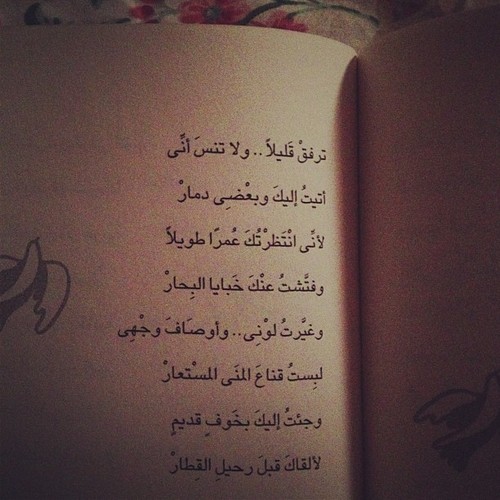 ترفقْ قَليلاً.. ولا تنسَ أنِّى
أتيتُ إليكَ وبعْضِى دمارْ
لأنِّى انْتَظرْتُكَ عُمرًا طويلاً
وفتَّشتُ عنْكَ خَبايا البِحارْ
وغيَّرتُ لوْنِى.. وأوصَافَ وجْهِى
لبِستُ قناعَ المنَى المسْتعارْ
وجئتُ إليكَ بخَوفٍ قديمٍ
لألقاكَ قبلَ رحيلِ القِطارْ